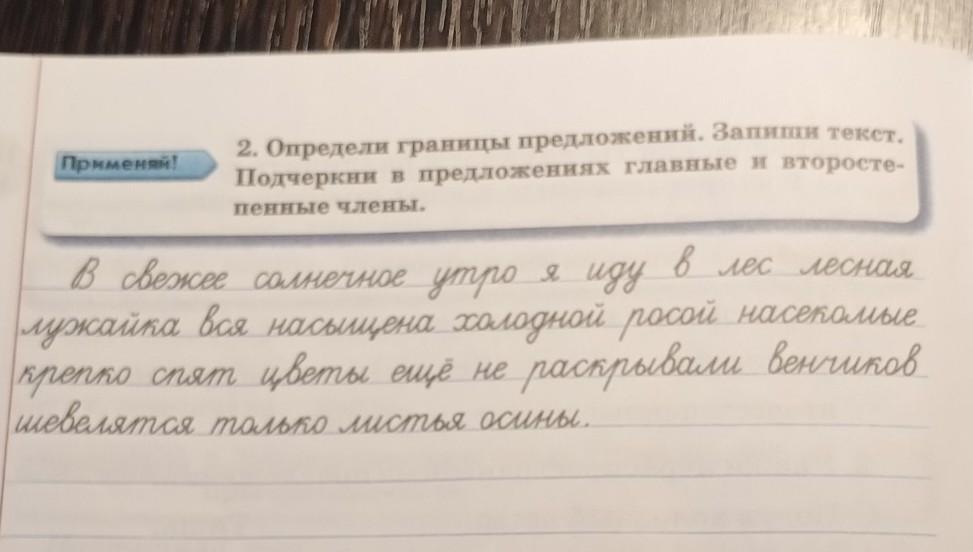 Применяй!
2. Определи границы предложений. Запиши текст.
Подчеркни в предложениях главные и второсте-
пенные члены.
В свежее солнечное утро я иду в лес лесная
лужайка вся насыщена холодной росой насекомые
крепко спят цветы ещё не раскрывали венчиков
шевелятся только листья осины.